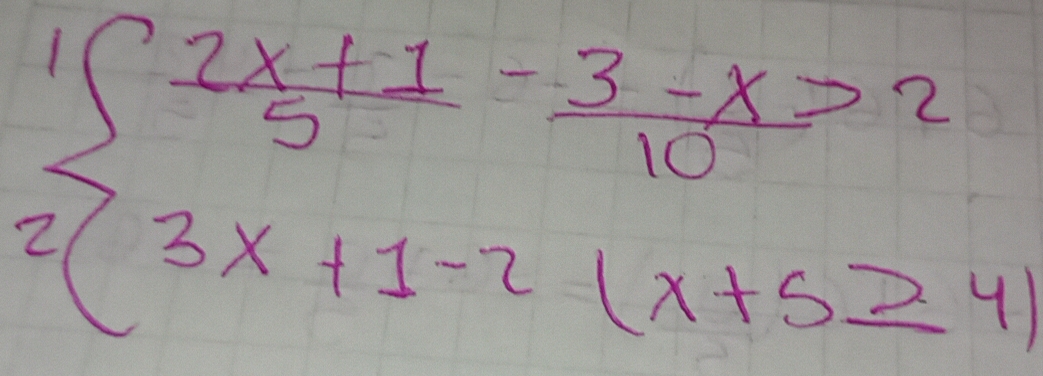 1 { (2x + 1)/5 - (3 - x)/10 > 2
2 { 3x + 1 - 2 (x + 5 ≥ 4)